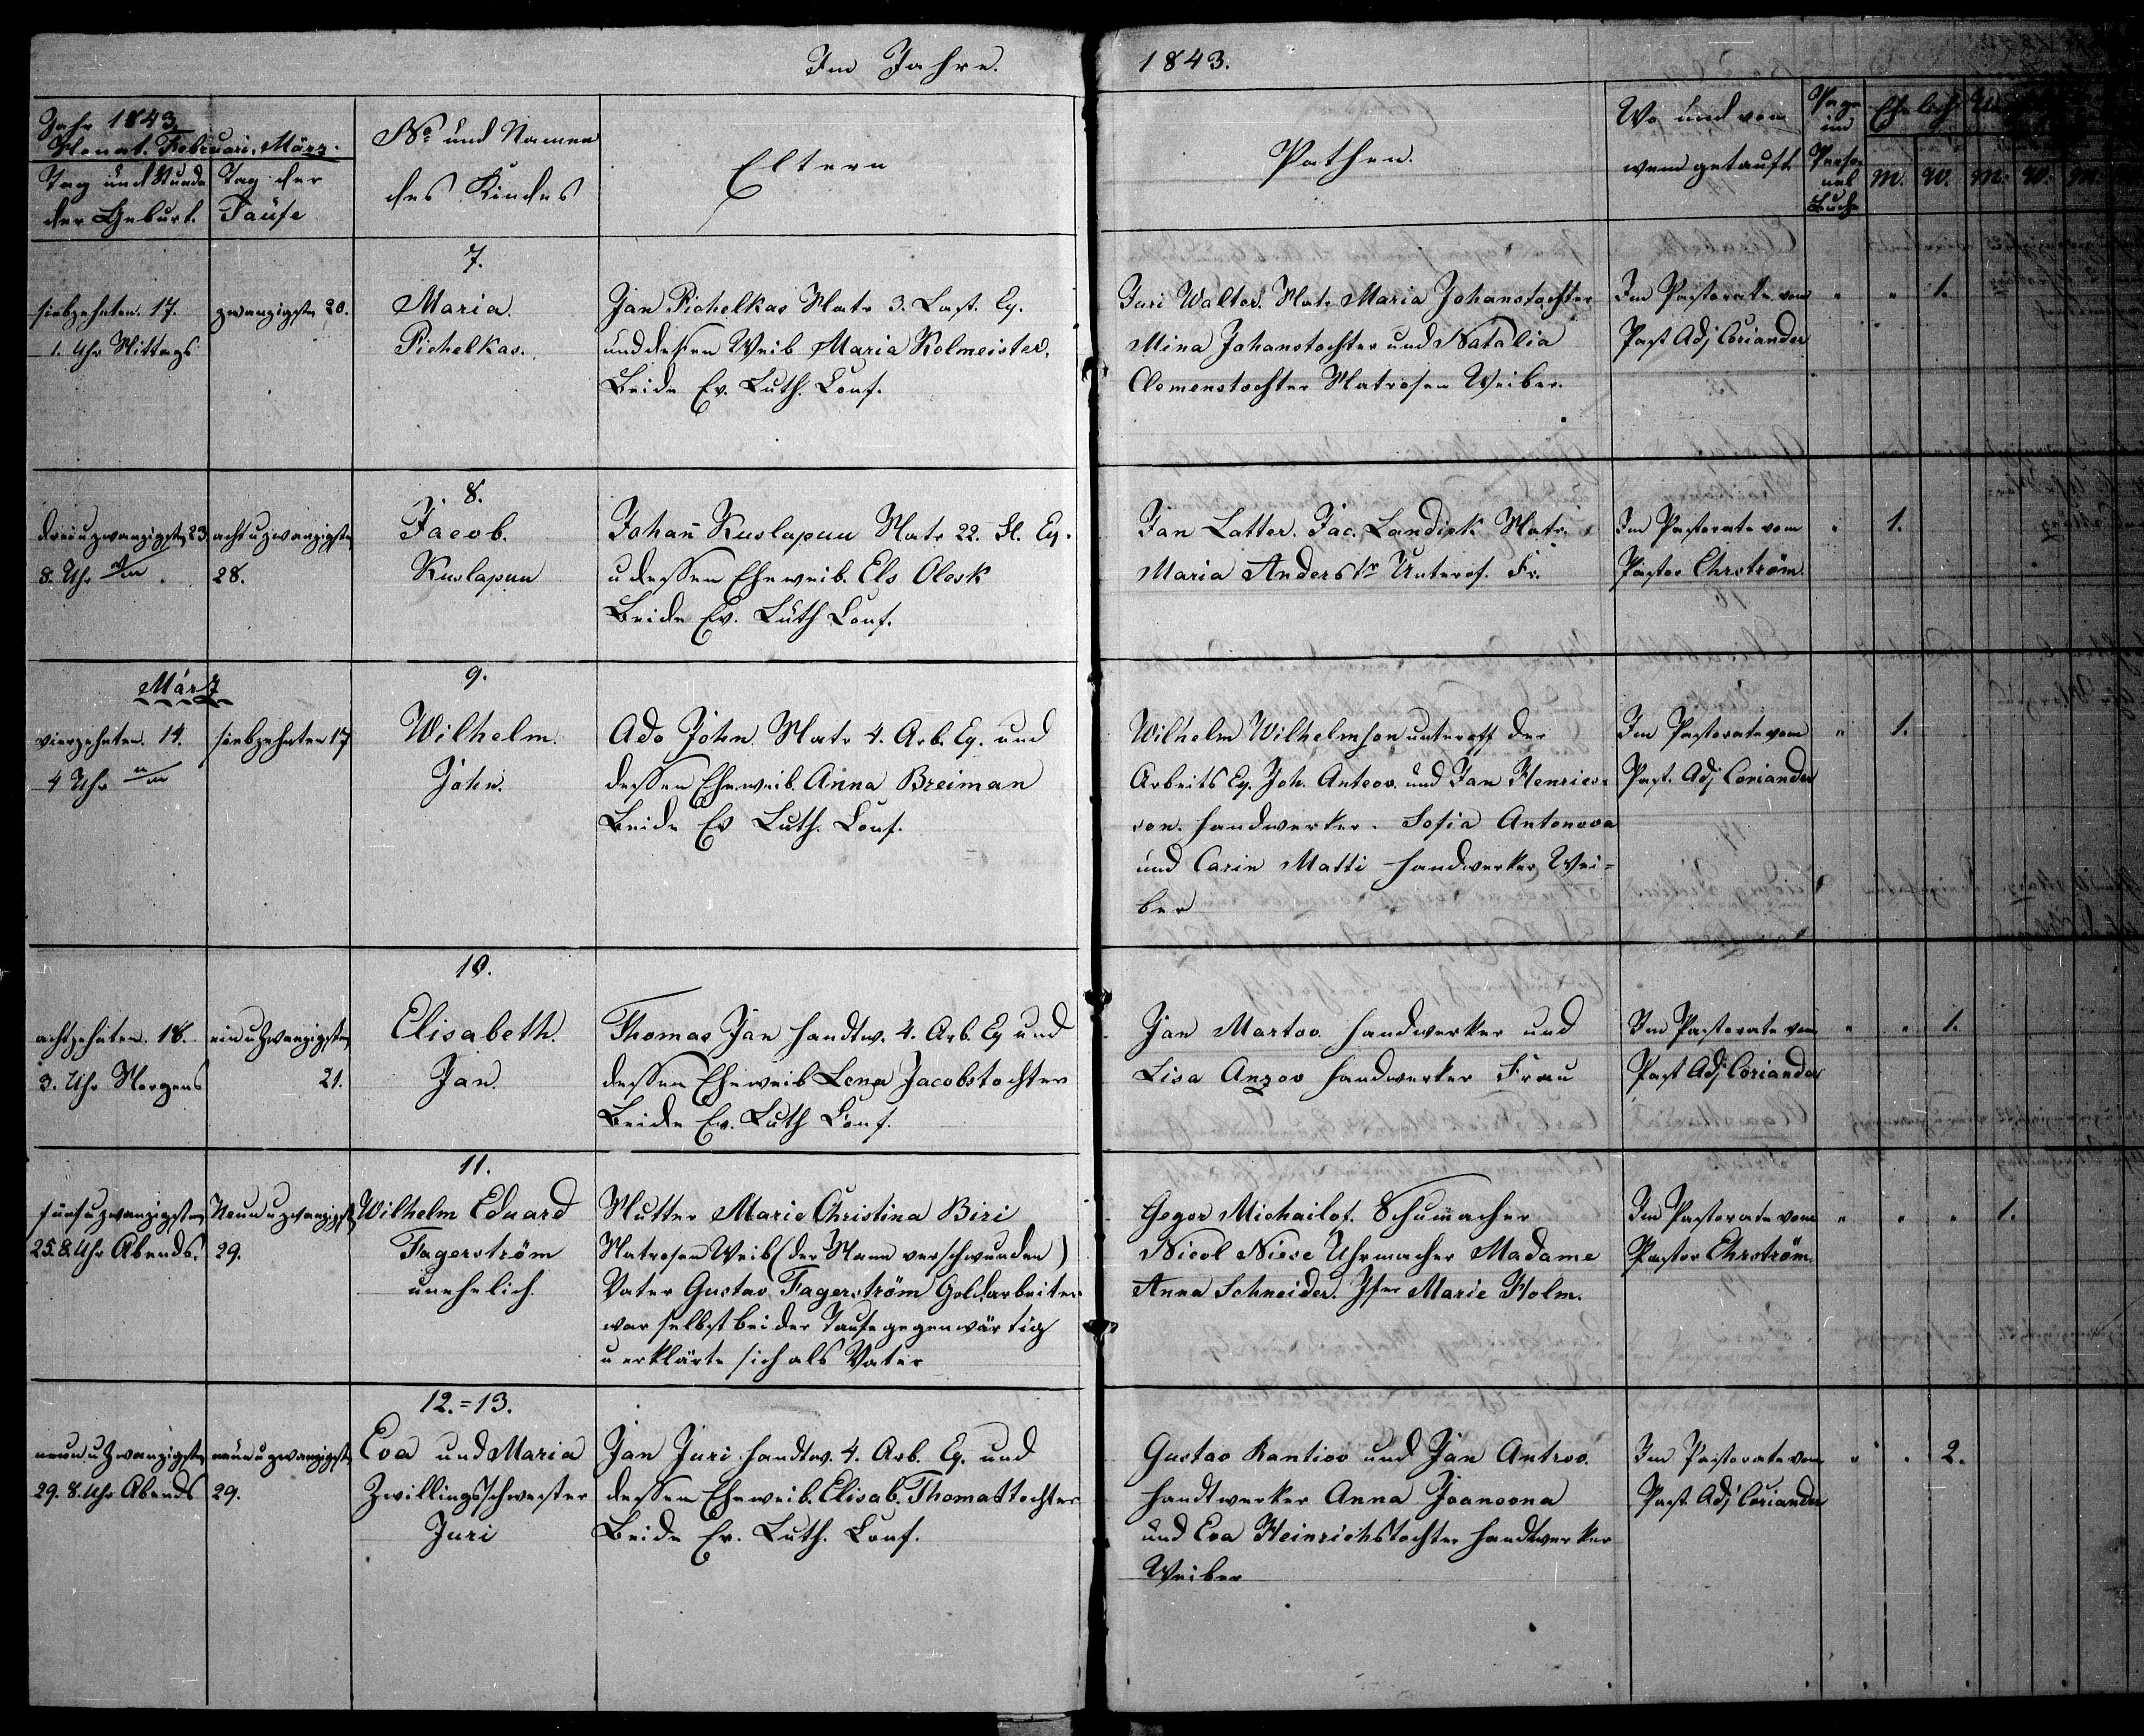 Im Jahre.
1843.
Jahr 1843
Monat. Februari. März.
Tag und Stunde
der Geburt.
Tag der
Taufe
No und Namen
des Kindes
Eltern
Pathen.
Wo und von
wem getauft.
Page
im
Perso-
nal
Buche
Ehelich
M. W. M. W. M.
siebzehnten. 17.
1. Uhr Mittags
zwanzigste 20.
7.
Maria.
Pichelkas.
Jan Pichelkas Matr 3. Last. Eq.
und dessen Weib Maria Kolmeister.
Beide Ev. Luth. Conf.
Juri Walter. Matr. Maria Johanstochter
Mina Johanstochter und Natalia
Clemenstochter Matrosen Weiber.
Im Pastorate vom
Past Adj Coriander
" " 1.
dreiuzwanzigsten 23
8. Uhr
achtuzwanzigsten
28.
8.
Jacob.
Kuslapuu
Johan̄ Kuslapuu Matr 22. Fl. Eq.
u dessen Eheweib. Els Olesk
Beide Ev. Luth Conf.
Jan Latter. Jac. Landisk Matr.
Maria Anderstr Unterof. Fr.
Im Pastorate vom
Pastor Ehrström.
" 1.
März
vierzehnten. 14.
4 Uhr
siebzehnten 17
9.
Wilhelm.
John.
Ado John Matr 4. Arb. Eq. und
dessen Eheweib. Anna Breiman
Beide Ev Luth. Conf.
Wilhelm Wilhelmson unteroff. der
Arbeits Eq. Joh. Antoov. und Jan Henrics-
son. Handwerker. Sofia Antonova
und Carin Matti Handwerker Wei-
ber
Im Pastorate vom
Past. Adj Coriander
" 1.
achtzehnten. 18.
3. Uhr Morgens
einuzwanzigsten
21.
10.
Elisabeth.
Jan.
Thomas Jan Handtw. 4. Arb. Eq und
dessen Eheweib Lena Jacobstochter
Beide Ev. Luth Conf.
Jan Martov. Handwerker und
Lisa Anzov Handwerker Frau
Im Pastorate vom
Past Adj Coriander
" " 1.
fünfuzwanzigsten
25. 8. Uhr Abends.
Neunuzwanzigste
29.
11.
Wilhelm Eduard
Fagerström
unehelich.
Mutter Marie Christina Biri
Matrosen Weib (der Mann verschwunden)
Vater Gustav Fagerström Goldarbeiter
war selbst bei der Taufe gegenwärtig
u erklärte sich als Vater
Gegor Michailof. Schumacher
Nicol Niese Uhrmacher Madame
Anna Schneider. Jfer Marie Holm.
Im Pastorate vom
Pastor Ehrström.
" " " 1.
neunuzwanzigsten
29. 8. Uhr Abends
neunuzwanzigste
29.
12.=13.
Eva und Maria
Zwillingsschwester
Juri
Jan Juri Handtw. 4. Arb. Eq. und
dessen Eheweib. Elisab. Thomastochter
Beide Ev. Luth. Conf.
Gustav Kantiov und Jan Antoov.
Handtwerker Anna Joanoona
und Eva Heinrichstochter Handtwerker
Weiber
Im Pastorate vom
Past Adj Coriander
" " 2.